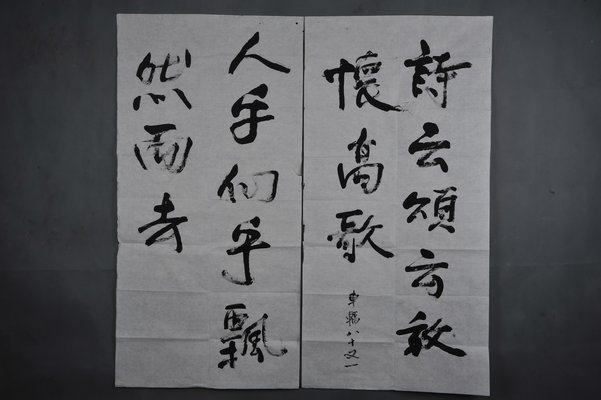 詩云頌云敞
懷高歌
車輻八十又一
人乎仙乎飄
然而去